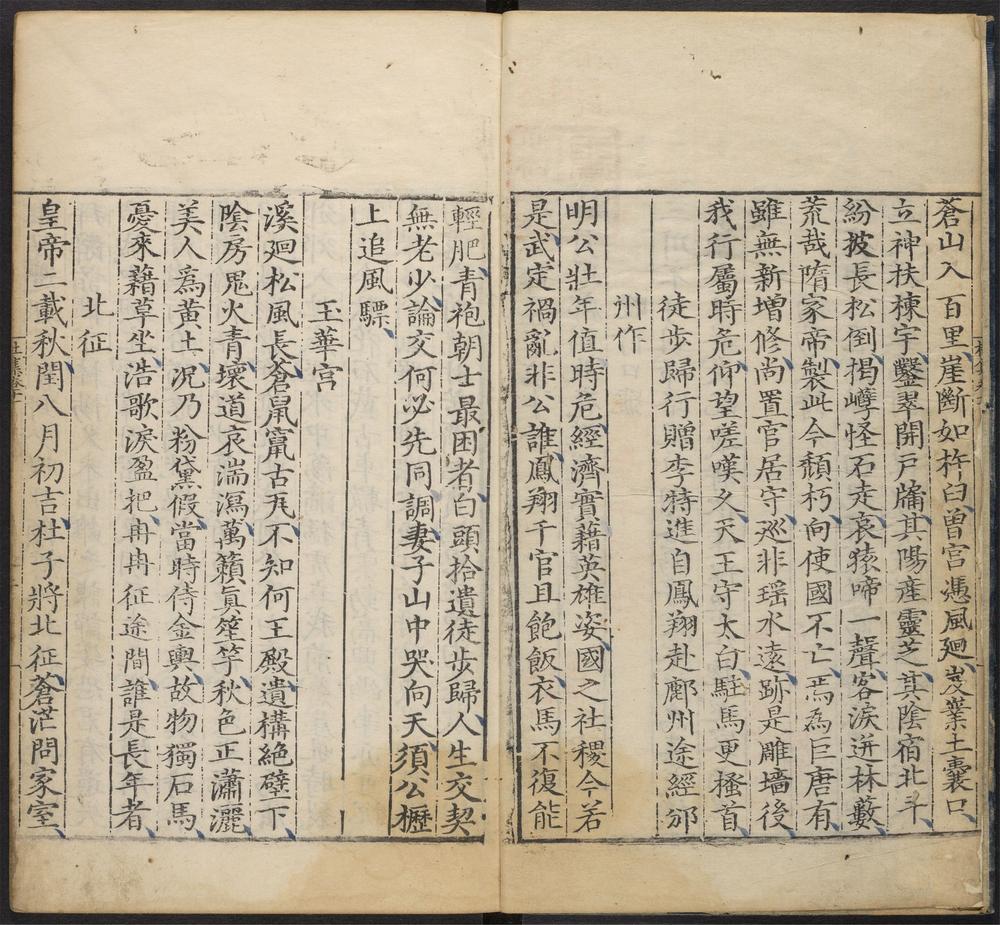 蒼山入百里崖斷如杵臼曾宮憑風廻岌嶪土囊口
立神扶棟宇鑿翠開戶牖其陽產靈芝其陰宿北斗
紛披長松倒揭㠥怪石走哀猿啼一聲客淚迸林藪
荒哉隋家帝製此今頹朽向使國不亡焉為巨唐有
雖無新增修尚置官居守巡非瑶水遠跡是雕墻後
我行屬時危仰望嗟嘆久天王守太白駐馬更搔首
徒步歸行贈李特進自鳳翔赴鄜州途經邠
州作
明公壯年值時危經濟實藉英雄姿國之社稷今若
是武定禍亂非公誰鳳翔千官且飽飯衣馬不復能
輕肥青袍朝士最困者白頭拾遺徒步歸人生交契
無老少論交何必先同調妻子山中哭向天須公櫪
上追風驃
玉華宮
溪廻松風長蒼鼠竄古瓦不知何王殿遺構絶壁下
陰房鬼火青壞道哀湍瀉萬籟眞笙竽秋色正瀟灑
美人爲黃土况乃粉黛假當時侍金輿故物獨石馬
憂來藉草坐浩歌淚盈把冉冉征途間誰是長年者
北征
皇帝二載秋閏八月初吉杜子將北征蒼茫問家室